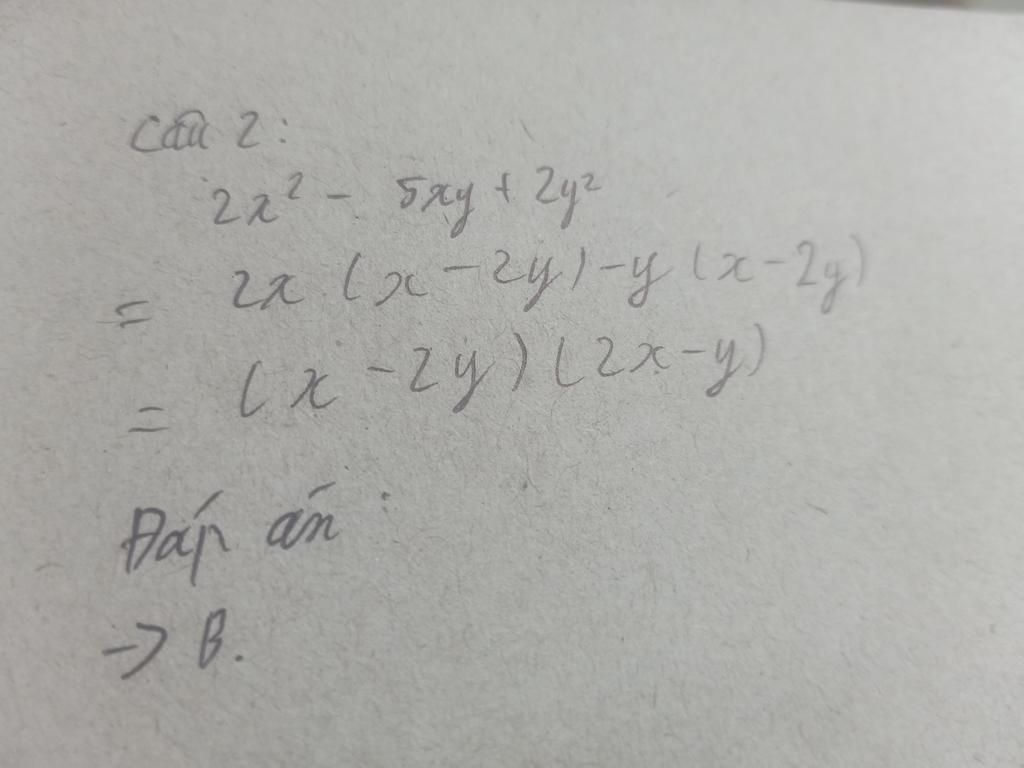 Câu 2:
2x² - 5xy + 2y²
= 2x (x - 2y) - y (x - 2y)
= (x - 2y) (2x - y)
Đáp án:
-> B.